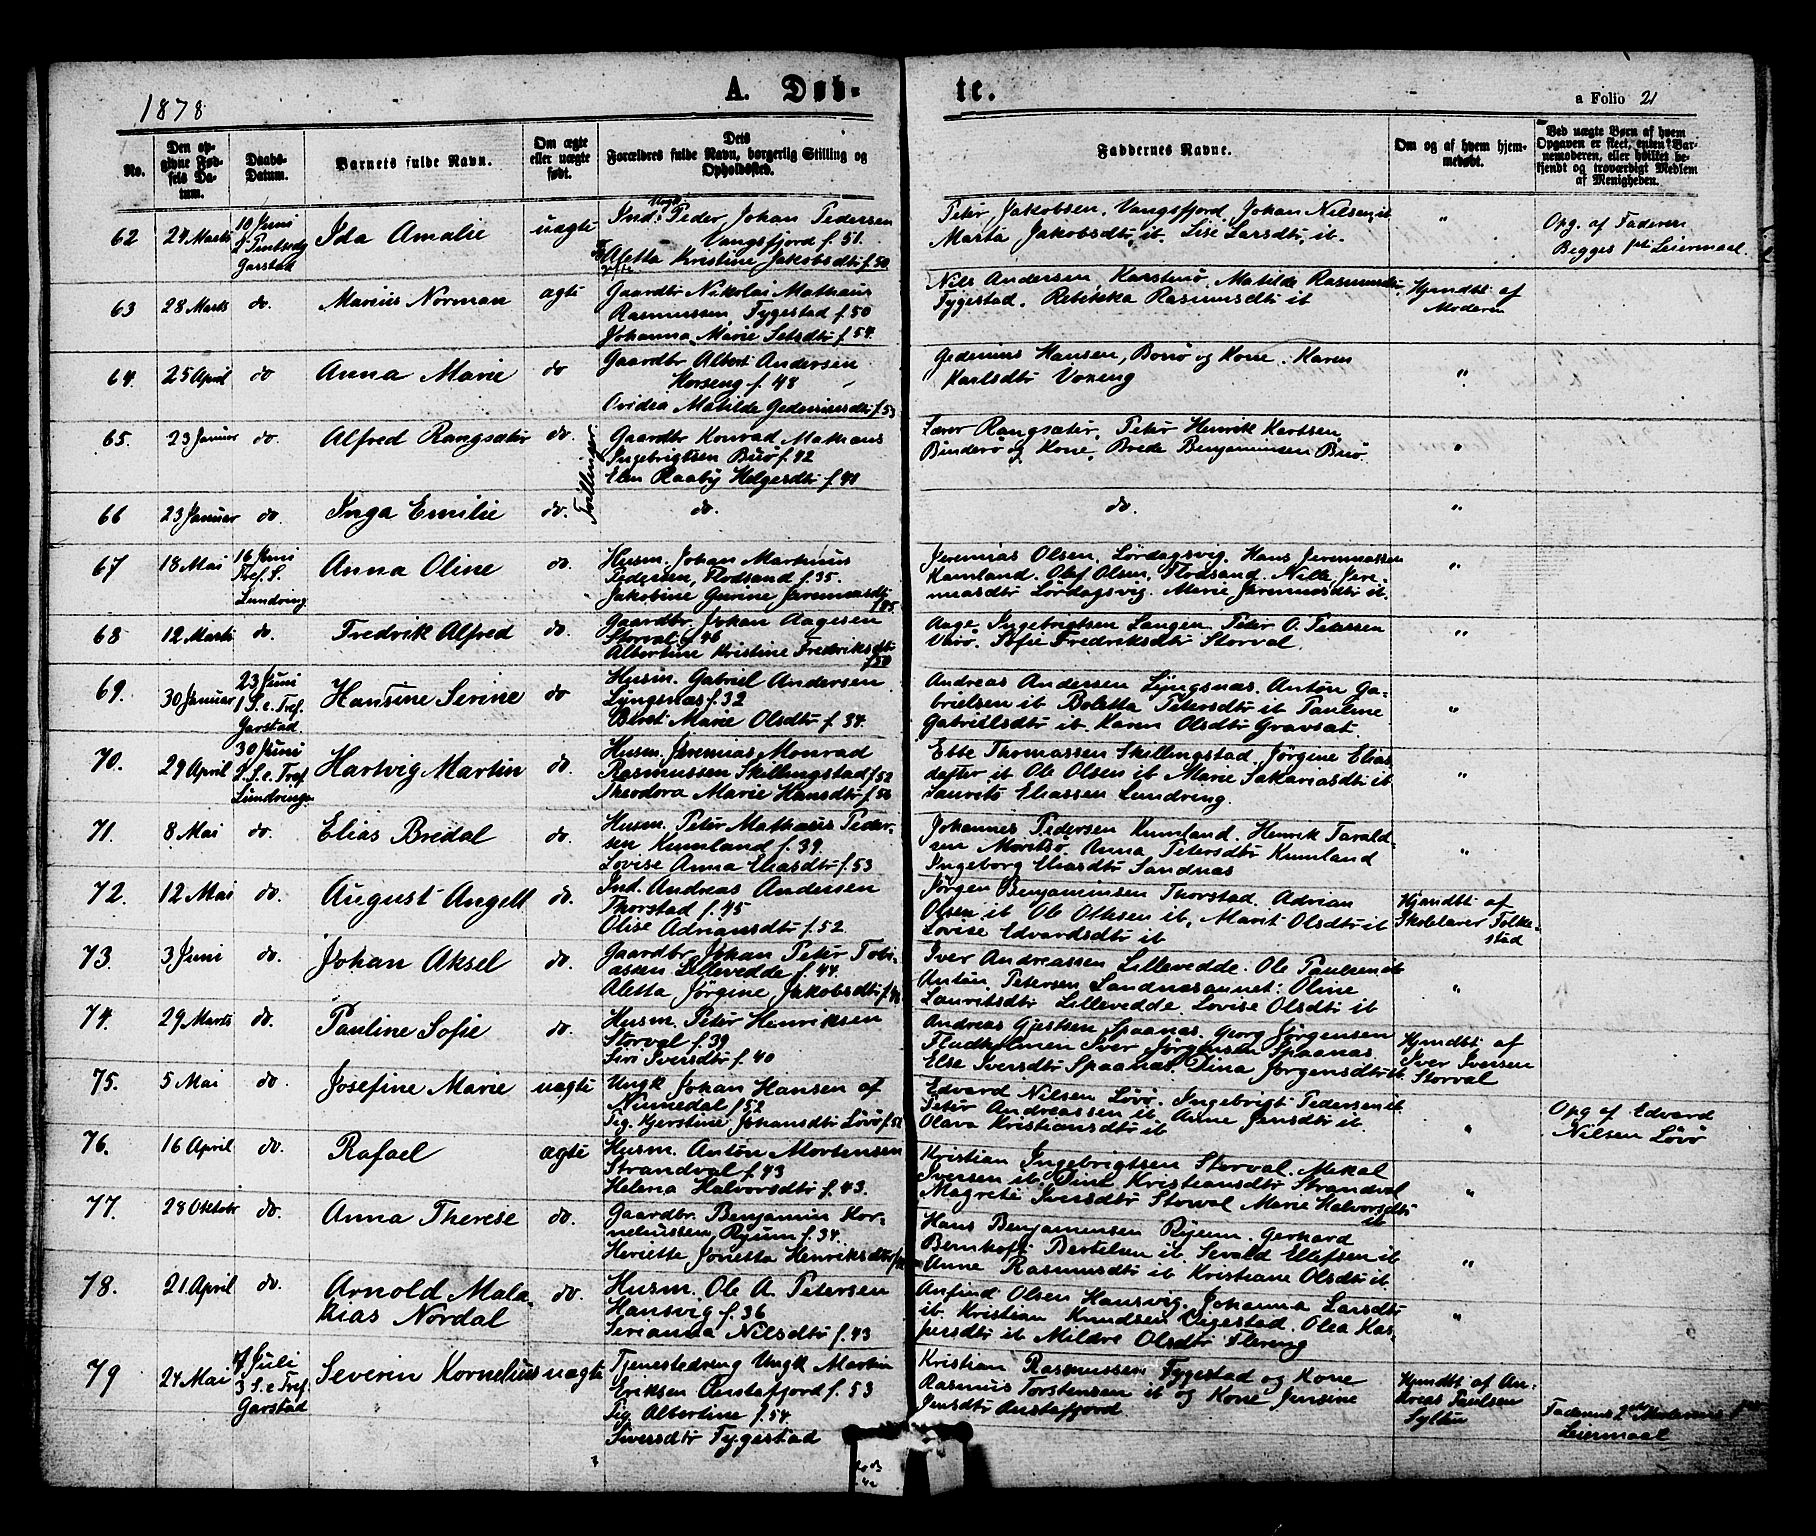 1878
A. Døb-
te.
a Folio 21
No.
Den op-
givne Fød-
sels Da-
tum.
Daabs-
Datum.
Barnets fulde Navn.
Om ægte
eller uægte
født.
Dets
Forældres fulde Navn, borgerlig Stilling og
Opholdssted.
Faddernes Navne.
Om og af hvem hjem-
medøbt.
Ved uægte Børn af hvem
Opgaven er skeet, enten Bar-
nemoderen, eller hvilket be-
kjendt og troværdigt Medlem
af Menigheden.
62 24 Marts 10 Juni
2 Pintsedg
Garstad
Ida Amalie uægte
Ind. Ungk Peder Johan Pedersen
Vangsfjord f. 51.
Aletta Kristine Jakobsdtr f. 50
Peter Jakobsen, Vangsfjord, Johan Nilsen ib
Marta Jakobsdtr, ib. Lise Larsdtr, ib.
"
Opg. af Faderen
Begges 1ste Leiermaal.
63 28 Marts do. Marius Norman ægte
Gaardbr Nikolai Mathæus
Rasmussen, Tygestad f. 50
Johanna Marie Setsdtr f. 54.
Nils Andersen Karstenø, Matilde Rasmusdtr
Tygestad, Rebekka Rasmusdtr ib
Hjmdbt af
Moderen
64. 25 April do Anna Marie do
Gaardbr Albert Andersen
Horseng f. 48
Ovidea Matilde Gedeniusdtr f. 53
Gedenius Hansen, Borø og Kone. Karen
Karlsdtr Voxeng
"
65. 23 Januar do. Alfred Rangsæter do.
Tvillinger
Gaardbr Konrad Mathæus
Ingebrigtsen Buøf. 42
Elen Raaby Helgesdtr f. 41
Færer Rangsæter, Peter Henrik Karlsen
Binderø og Kone, Brede Benjaminsen Buø.
"
66 23 Januar do. Inga Emilie do. do.
do.
"
67 18 Mai 16 Juni
Tref. S.
Lundring
Anna Oline do.
Husm. Johan Martinus
Pedersen, Flodsand f. 35.
Jakobine Gurine Jeremiasdtr
f 45
Jeremias Olsen, Lørdagsvig. Hans Jeremiassen
Kumland. Olaf Olsen, Flodsand. Nille Jere-
miasdtr Lørdagsvig. Marie Jeremiasdtr ib.
"
68 12 Marts do. Fredrik Alfred do.
Gaardbr. Johan Aagesen
Storval f. 46
Albertine Kristine Fredriksdtr
f 50
Aage Ingebrigtsen Langen Peter O. Petersen
Varø. Sofie Fredriksdtr Storval.
"
69. 30 Januar 23 Juni
1 S. e. Tref.
Garstad
Hansine Serine do
Husm. Gabriel Andersen
Lyngsnæs f. 32
Beret Marie Olsdtr f. 34.
Andreas Andersen Lyngsnæs. Anton Ga-
brielsen ib Boletta Petersdtr ib Pauline
Gabrielsdtr ib. Karen Olsdtr Gravsæt.
"
70. 29 April 30 Juni
2 S. e. Tref
Lundringen
Hartvig Martin do.
Husm. Jeremias Monrad
Rasmussen Skillingstad f 52
Theodora Marie Hansdtr f. 56
Ebbe Thomassen Skillingstad. Jørgine Elias
datter ib Ole Olsen ib Marie Sakariasdtr ib
Laurits Eliassen Lundring.
"
71. 8 Mai do. Elias Bredal do.
Husm. Peter Mathæus Peder-
sen Kumland f. 39.
Lovise Anna Eliasdtr f. 53
Johannes Pedersen Kumland. Henrik Tarald-
sen Moritsø, Anna Petersdtr Kumland
Ingeborg Eliasdtr Sandnæs
"
72. 12 Mai do. August Angell do.
Ind. Andreas Andersen
Thorstad f. 45
Olise Adriansdtr f. 52
Jørgen Benjaminsen Thorstad. Adrian
Olsen ib Ole Olsen ib, Marit Olsdtr ib
Lovise Edvardsdtr ib
Hjmdbt af
Skolelærer Folke-
stad
73. 3 Juni do. Johan Aksel do.
Gaardbr Johan Peter Tobi-
assen Lillevedde f. 44.
Aletta Jørgine Jakobsdtr f.
Iver Andreassen Lillevedde. Ole Paulsen ib
Anton Petersen Sandnæsvannet: Oline
Lauritsdtr Lillevedde, Lovise Olsdtr ib
"
74. 29 Marts do. Pauline Sofie do.
Husm. Peter Henriksen
Storval f. 39
Siri Iversdtr f. 40
Andreas Gjertsen Spaanæs. Georg Jørgensen
Fludholmen Iver Jørgensen Spaanæs
Else Iversdtr Spaanæs, Dina Jørgensdtr ib
Hjmdbt af
Iver Iversen
Storval
75. 5 Mai do. Josefine Marie uægte
Ungk Johan Hansen af
Numedal f 52
Pig. Kjerstine Johansdtr Løvø f. 51
Edvard Nilsen Løvø. Ingebrigt Pedersen ib
Peter Andreassen ib Anne Jensdtr ib.
Olava Kristiansdtr ib
"
Opg af Edvard
Nilsen Løvø
76. 16 April do. Rafael ægte
Husm. Anton Mortensen
Strandval f. 43
Helena Halvorsdtr f. 43.
Kristian Ingebrigtsen Storval. Mekal
Iversen ib. Dine Kristiansdtr Strandval
Magrete Iversdtr Storval Marie Halvorsdtr
ib
"
77. 28 Oktobr do. Anna Therese do.
Gaardbr. Benjamin Kor-
neliussen, Ryum f. 34.
Heriette Jonetta Henriksdtr
Hans Benjaminsen Ryum. Gerhard
Bernhoft Bertelsen ib Sevald Ellefsen ib
Anne Rasmusdtr ib Kristiane Olsdtr ib
"
78. 21 April do. Arnold Mala-
kias Nordal
do.
Husm. Ole A. Petersen
Hansvig f. 36
Serianna Nilsdtr f. 43
Anfind Olsen Hansvig. Johanna Larsdtr
ib. Kristian Knudsen Vigestad. Olea Kas-
persdtr ib Mildre Olsdtr Flereng
"
79 24 Mai 7 Juli
3 S. e Tref
Garstad
Severin Kornelius uægte
Tjenestedreng Ungk Martin
Eriksen Austafjord f. 53
Pig. Albertine f. 54.
Siversdtr Tygestad
Kristian Rasmussen Tygestad og Kone
Rasmus Torstensen ib og Kone Jensine
Jensdtr Austafjord
Hjmdbt af An-
dreas Paulsen
Sylten
Faderens 2det Moderens 1ste
Leiermaal